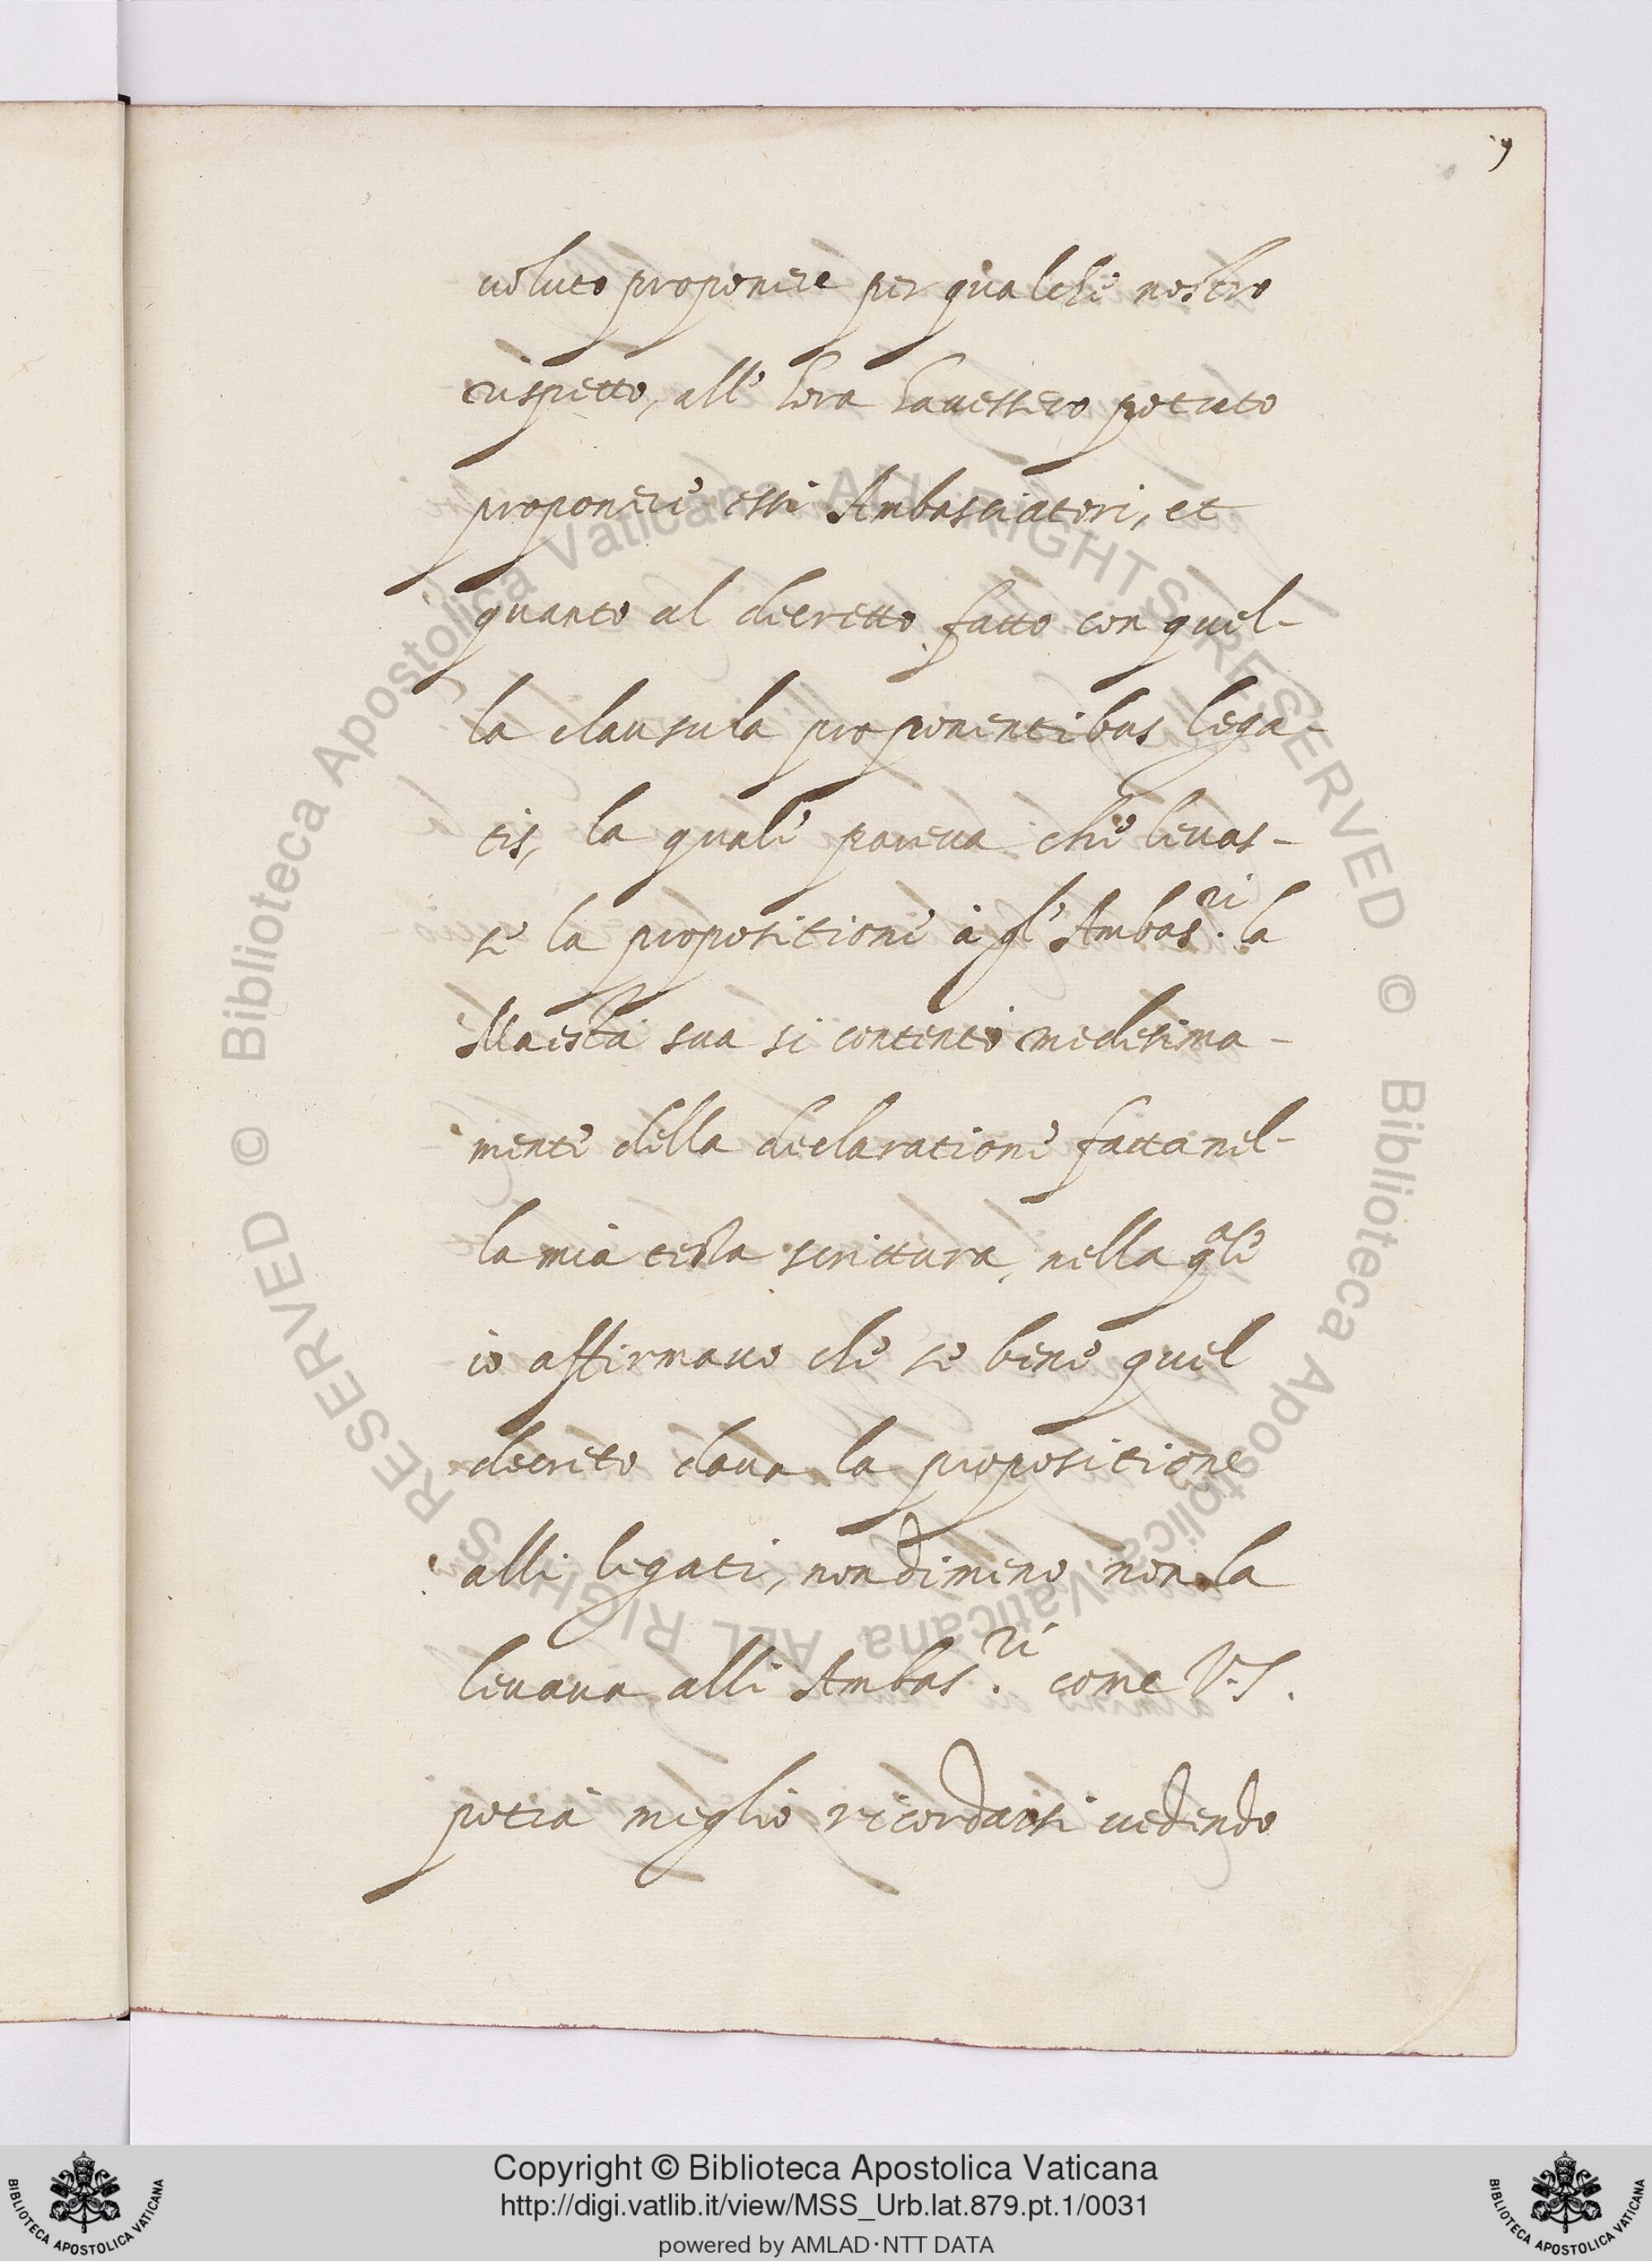 9
uoluto proponere per qualche nostro
rispetto, all' hora hauessero potuto
proponere essi Ambasciatori, et
quanto al decretto fatto con quel-
la clausula proponentibus lega-
tis, la quale pareua che leuas-
se la propositione à gl' Ambas.ri la
Maestà sua si contentò medesima-
mente della declaratione fatta nel-
la mia terza scrittura, nella qale
io affirmauo che se bene quel
decreto daua la propositione
alli legati, nondimeno non la
leuaua alli Ambas.ri come V.S.
potrà meglio ricordarsi uedendo
© Biblioteca Apostolica Vaticana ALL RIGHTS RESERVED © Biblioteca Apostolica Vaticana ALL RIGHTS RESERVED
Copyright © Biblioteca Apostolica Vaticana
http://digi.vatlib.it/view/MSS_Urb.lat.879.pt.1/0031
powered by AMLAD·NTT DATA
BIBLIOTECA APOSTOLICA VATICANA
BIBLIOTECA APOSTOLICA VATICANA